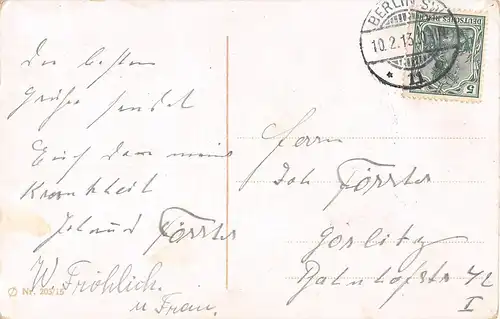 Die besten
Grüße sendet
Euch
Krankheit
Johann Förster
W. Fröhlich.
u Frau.
Nr. 202/15
BERLIN S.W.
10.2.13.
* 11
DEUTSCHES REICH
5
Herrn
Joh Förster
Görlitz
Bahnhofstr 42
I